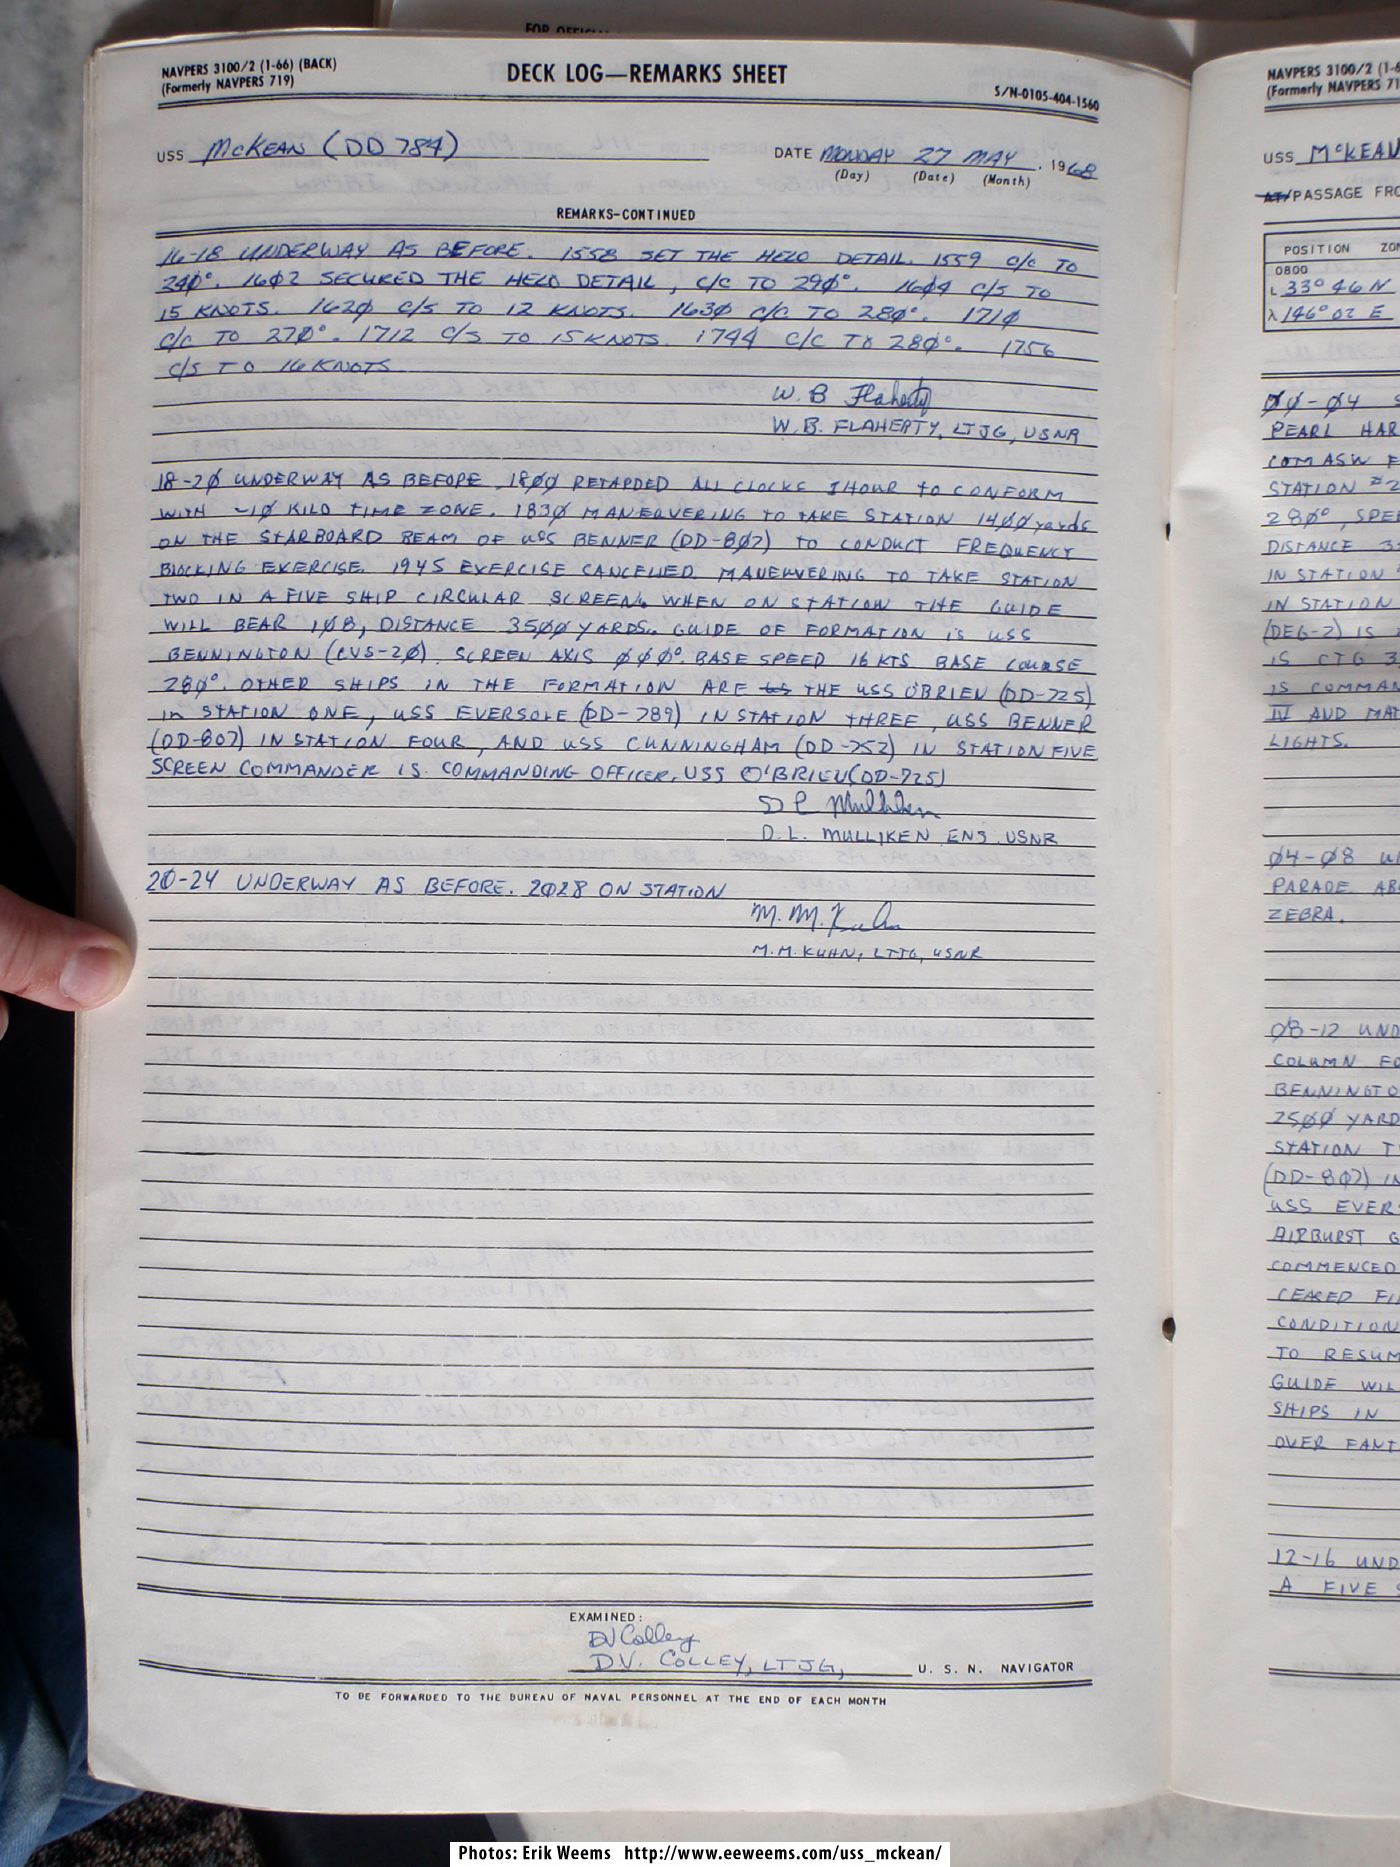 FOR OFFICIAL
NAVPERS 3100/2 (1-66) (BACK)
(Formerly NAVPERS 719)
DECK LOG—REMARKS SHEET
S/N-0105-404-1560
USS McKEAN (DD 784)
DATE MONDAY 27 MAY, 1968
(Day) (Date) (Month)
REMARKS-CONTINUED
16-18 UNDERWAY AS BEFORE. 1558 SET THE HELO DETAIL. 1559 C/C TO
240°. 16Ø2 SECURED THE HELO DETAIL, C/C TO 29Ø°. 16Ø4 C/S TO
15 KNOTS. 162Ø C/S TO 12 KNOTS. 163Ø C/C TO 28Ø°. 171Ø
C/C TO 27Ø°. 1712 C/S TO 15 KNOTS. 1744 C/C TO 28Ø°. 1756
C/S TO 16 KNOTS
W. B Flaherty
W.B. FLAHERTY, LTJG, USNR
18-2Ø UNDERWAY AS BEFORE. 18ØØ RETARDED ALL CLOCKS 1 HOUR TO CONFORM
WITH -1Ø KILO TIME ZONE. 183Ø MANEUVERING TO TAKE STATION 14ØØ yards
ON THE STARBOARD BEAM OF USS BENNER (DD-8Ø7) TO CONDUCT FREQUENCY
BLOCKING EXERCISE. 1945 EXERCISE CANCELLED. MANEUVERING TO TAKE STATION
TWO IN A FIVE SHIP CIRCULAR SCREEN. WHEN ON STATION THE GUIDE
WILL BEAR 1Ø8, DISTANCE 35ØØ YARDS. GUIDE OF FORMATION IS USS
BENNINGTON (CVS-2Ø). SCREEN AXIS ØØØ°. BASE SPEED 16 KTS BASE COURSE
28Ø°. OTHER SHIPS IN THE FORMATION ARE THE USS O'BRIEN (DD-725)
IN STATION ONE, USS EVERSOLE (DD-789) IN STATION THREE, USS BENNER
(DD-807) IN STATION FOUR, AND USS CUNNINGHAM (DD-752) IN STATION FIVE
SCREEN COMMANDER IS COMMANDING OFFICER, USS O'BRIEN (DD-725)
D L Mulliken
D.L. MULLIKEN ENS. USNR
20-24 UNDERWAY AS BEFORE. 2Ø28 ON STATION
M. M. Kuhn
M.M. KUHN, LTJG, USNR
EXAMINED:
DV Colley
D.V. COLLEY, LTJG, U. S. N. NAVIGATOR
TO BE FORWARDED TO THE BUREAU OF NAVAL PERSONNEL AT THE END OF EACH MONTH
NAVPERS 3100/2 (1-6
(Formerly NAVPERS 71
USS McKEAN
AT/PASSAGE FRO
POSITION ZON
0800
L 33° 46 N
λ 146° 02 E
ØØ-Ø4 S
PEARL HAR
COMASW F
STATION #2
28Ø°, SPEE
DISTANCE 35
IN STATION
IN STATION
(DEG-2) IS
IS CTG 3
IS COMMAN
IV AND MAT
LIGHTS.
Ø4-Ø8 U
PARADE AB
ZEBRA.
Ø8-12 UND
COLUMN FO
BENNINGTO
25ØØ YARD
STATION T
(DD-8Ø7) IN
USS EVERS
AIRBURST G
COMMENCED
CEASED FI
CONDITION
TO RESUM
GUIDE WIL
SHIPS IN
OVER FANT
12-16 UND
A FIVE S
Photos: Erik Weems http://www.eeweems.com/uss_mckean/